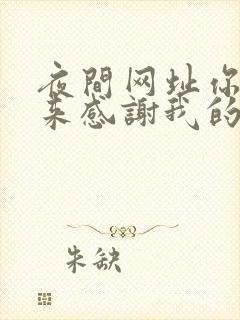 夜間网址你
来感謝我的
朱缺